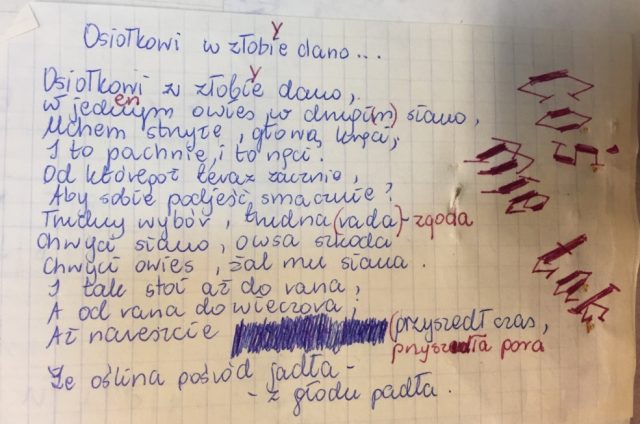 Osiołkowi w złobie dano...
y
Osiołkowi w złobie dano,
y
W jednym owies, w drugi(m) siano,
en
Uchem strzyże, głową kręci,
I to pachnie, i to nęci.
Od którego teraz zacznie,
Aby sobie podjeść smacznie?
Trudny wybór, trudna (rada) - zgoda
Chwyci siano, owsa szkoda
Chwyci owies, żal mu siana.
I tak stoi aż do rana,
A od rana do wieczora,
Aż nareszcie (przyszedł czas,
przyszła pora
Że oślina pośród jadła -
- z głodu padła.
Coś
nie
tak